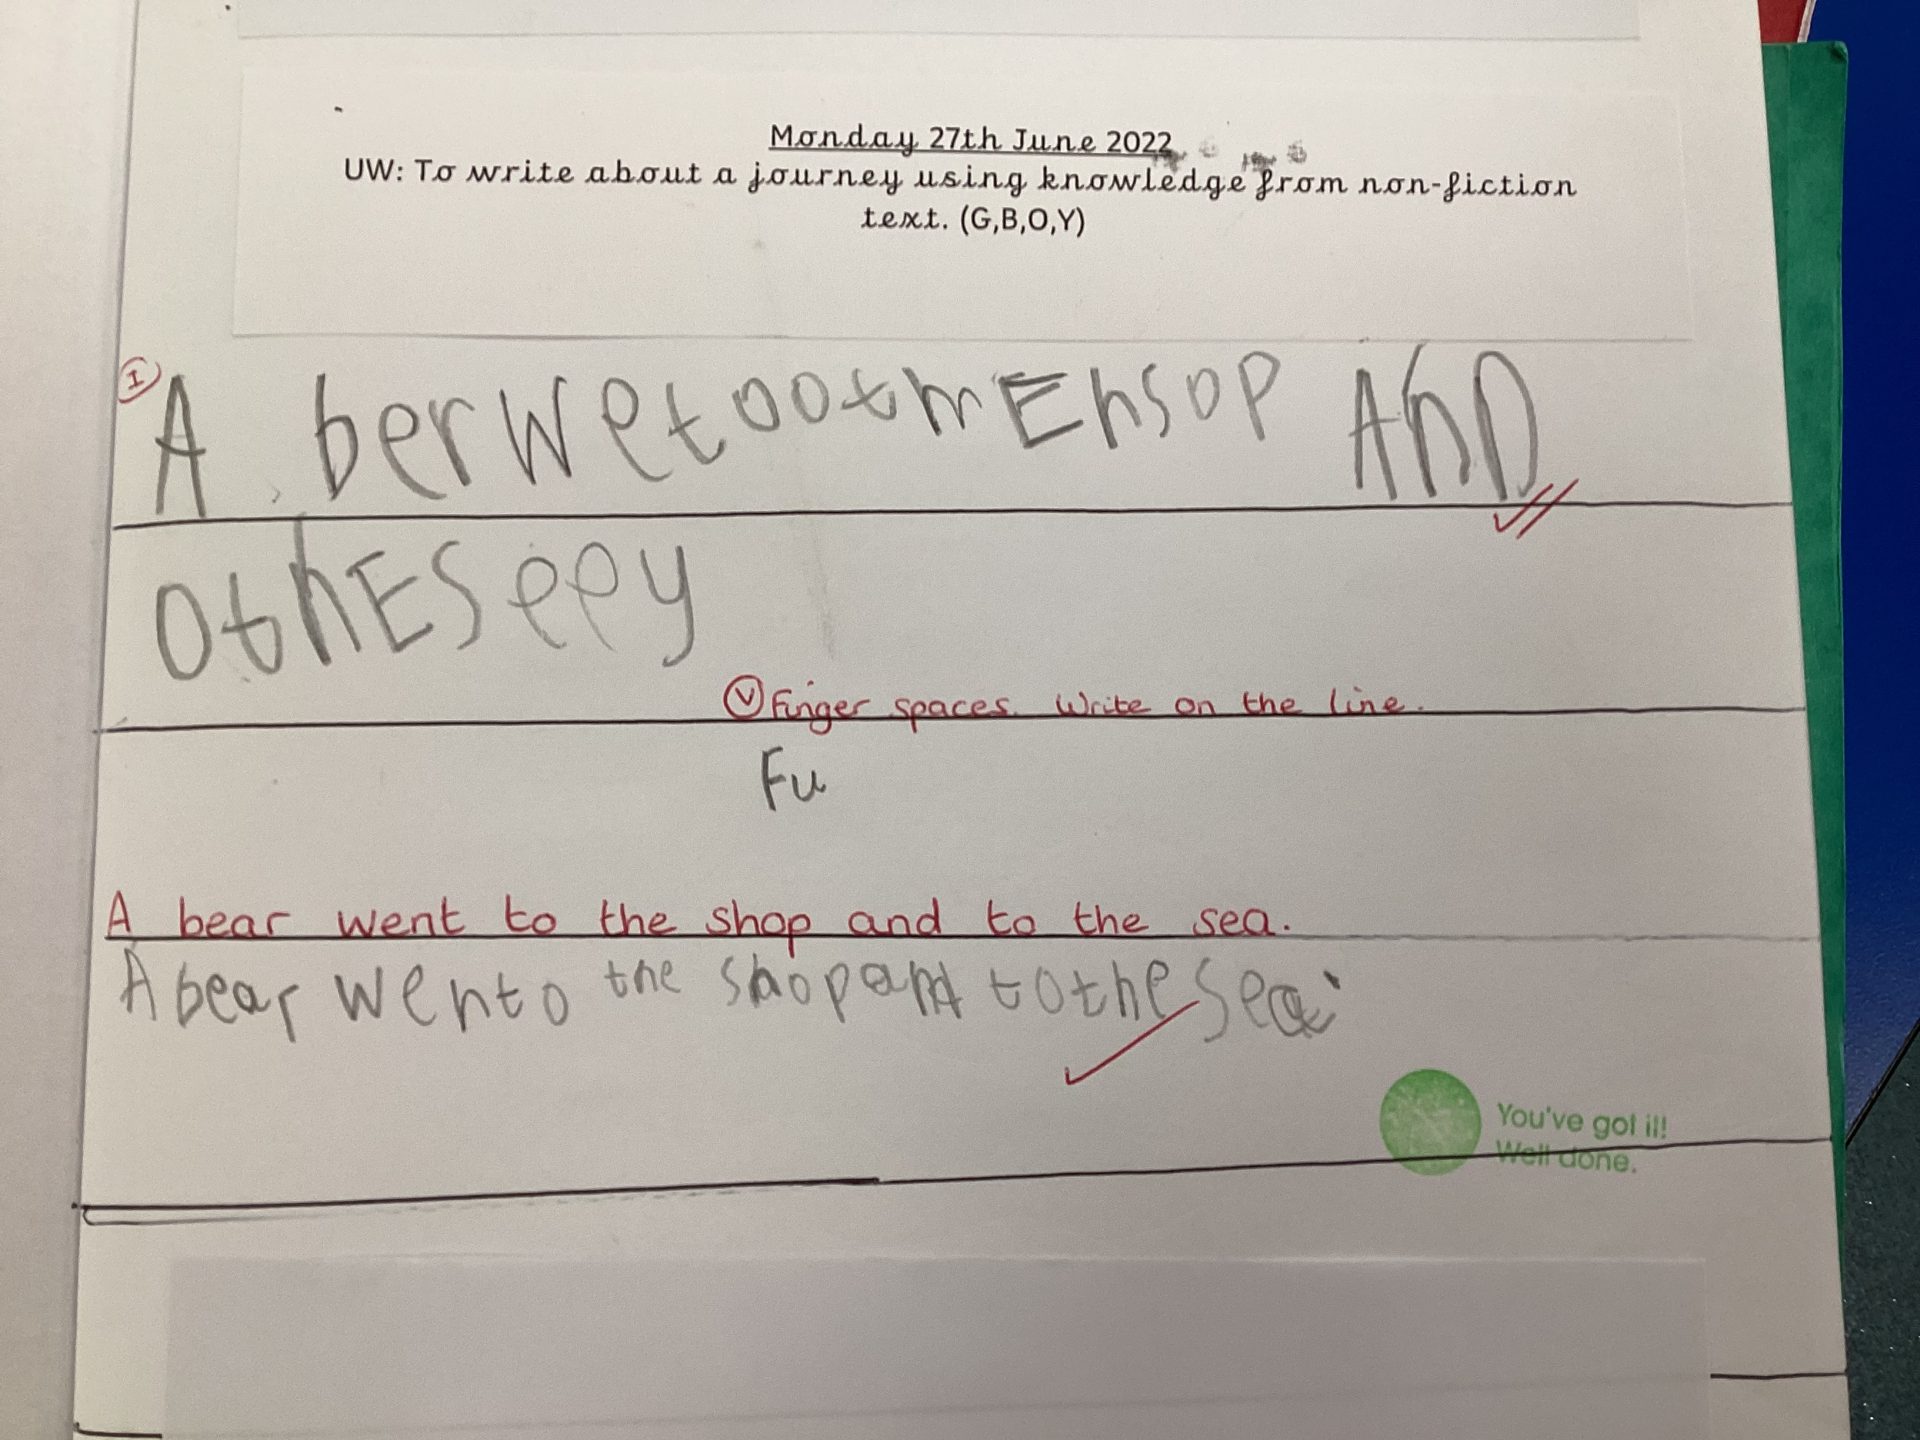 Monday 27th June 2022
UW: To write about a journey using knowledge from non-fiction
text. (G,B,O,Y)
I
A berwetootmEhsop AhD
othEseey
V Finger spaces. Write on the line.
Fu
A bear went to the shop and to the sea.
A bear wento the shop and to the sea.
You've got it!
Well done.